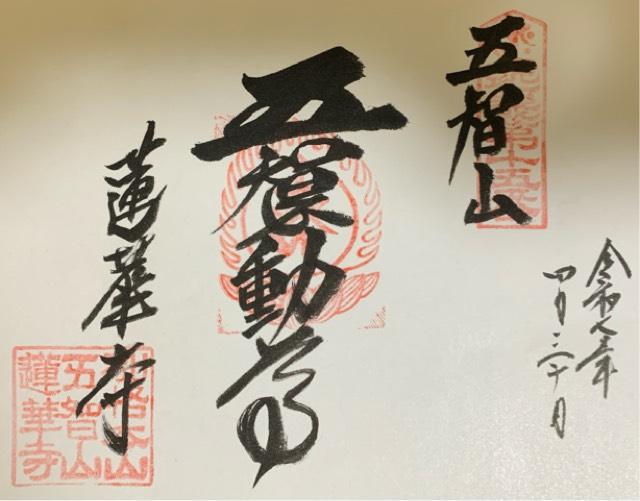 五智山
令和七年
四月
五智不動尊
蓮華寺
五智山
蓮華寺